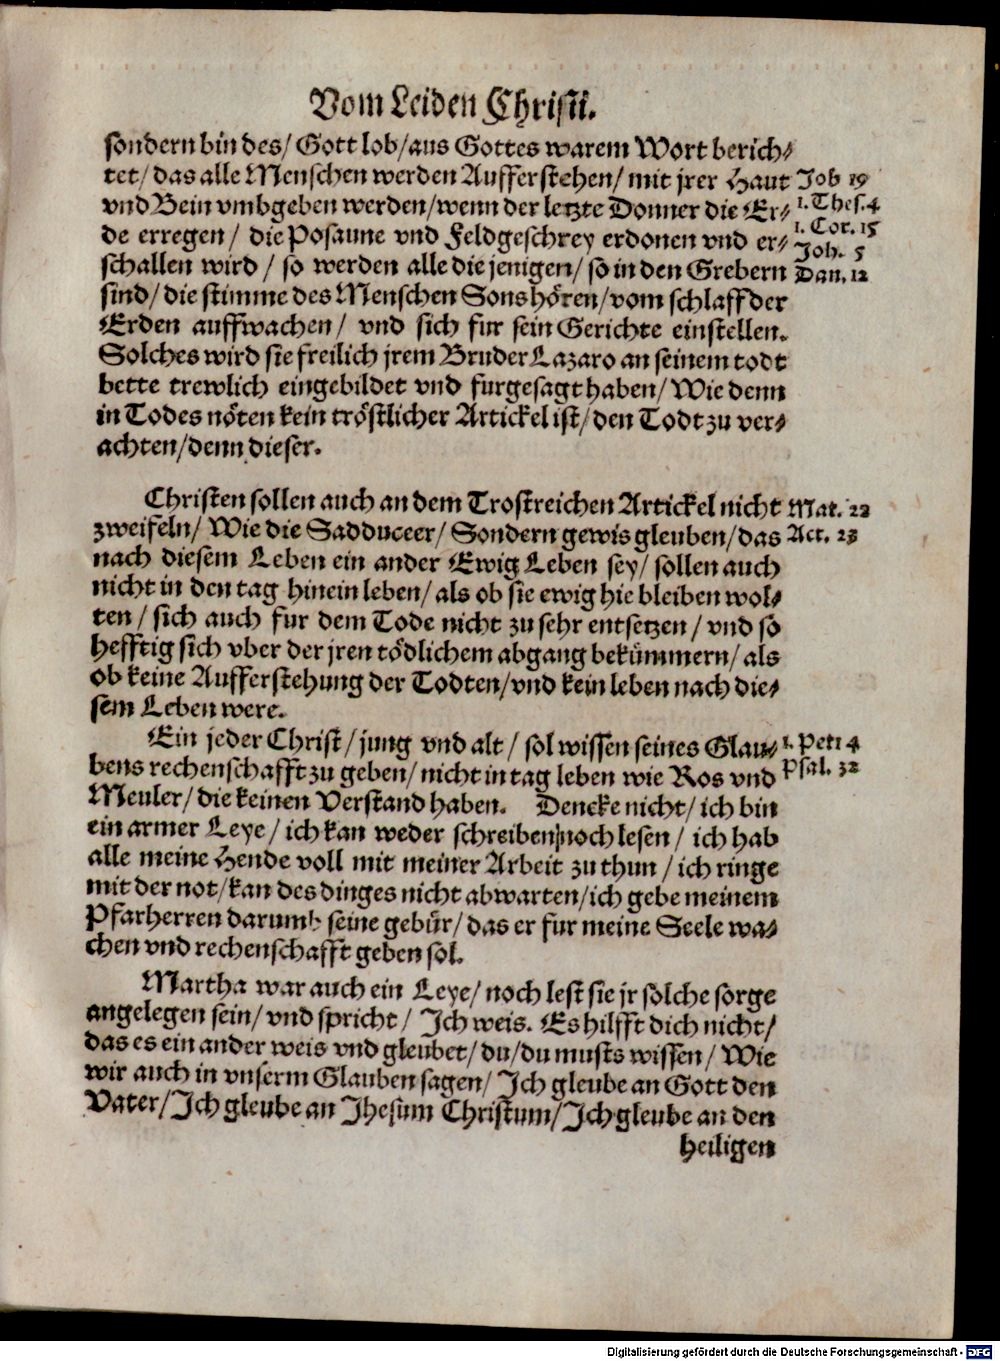 Vom Leiden Christi.
sondern bin des/ Gott lob/ aus Gottes warem Wort berich-
tet/ das alle Menschen werden Aufferstehen/ mit jrer Haut
Job 19
vnd Bein vmbgeben werden/ wenn der letzte Donner die Er-
1. Thes. 4
de erregen/ die Posaune vnd Feldgeschrey erdonen vnd er-
1. Cor. 15
Joh. 5
schallen wird/ so werden alle die jenigen/ so in den Grebern
Dan. 12
sind/ die stimme des Menschen Sons hören/ vom schlaff der
Erden auffwachen/ vnd sich fur sein Gerichte einstellen.
Solches wird sie freilich jrem Bruder Lazaro an seinem todt
bette trewlich eingebildet vnd furgesagt haben/ Wie denn
in Todes nöten kein tröstlicher Artickel ist/ den Todt zu ver-
achten/ denn dieser.
Christen sollen auch an dem Trostreichen Artickel nicht
Mat. 22
zweifeln/ Wie die Sadduceer/ Sondern gewis gleuben/ das
Act. 23
nach diesem Leben ein ander Ewig Leben sey/ sollen auch
nicht in den tag hinein leben/ als ob sie ewig hie bleiben wol-
ten/ sich auch fur dem Tode nicht zu sehr entsetzen/ vnd so
hefftig sich vber der jren tödlichem abgang bekümmern/ als
ob keine Aufferstehung der Todten/ vnd kein leben nach die-
sem Leben were.
Ein jeder Christ/ jung vnd alt/ sol wissen seines Glau-
1. Petri 4
bens rechenschafft zu geben/ nicht in tag leben wie Ros vnd
Psal. 32
Meuler/ die keinen Verstand haben. Dencke nicht/ ich bin
ein armer Leye/ ich kan weder schreiben noch lesen/ ich hab
alle meine Hende voll mit meiner Arbeit zu thun/ ich ringe
mit der not/ kan des dinges nicht abwarten/ ich gebe meinem
Pfarherren darumb seine gebür/ das er fur meine Seele wa-
chen vnd rechenschafft geben sol.
Martha war auch ein Leye/ noch lest sie jr solche sorge
angelegen sein/ vnd spricht/ Ich weis. Es hilfft dich nicht/
das es ein ander weis vnd gleubet/ du/ du musts wissen/ Wie
wir auch in vnserm Glauben sagen/ Ich gleube an Gott den
Vater/ Ich gleube an Jhesum Christum/ Ich gleube an den
heiligen
Digitalisierung gefördert durch die Deutsche Forschungsgemeinschaft - DFG